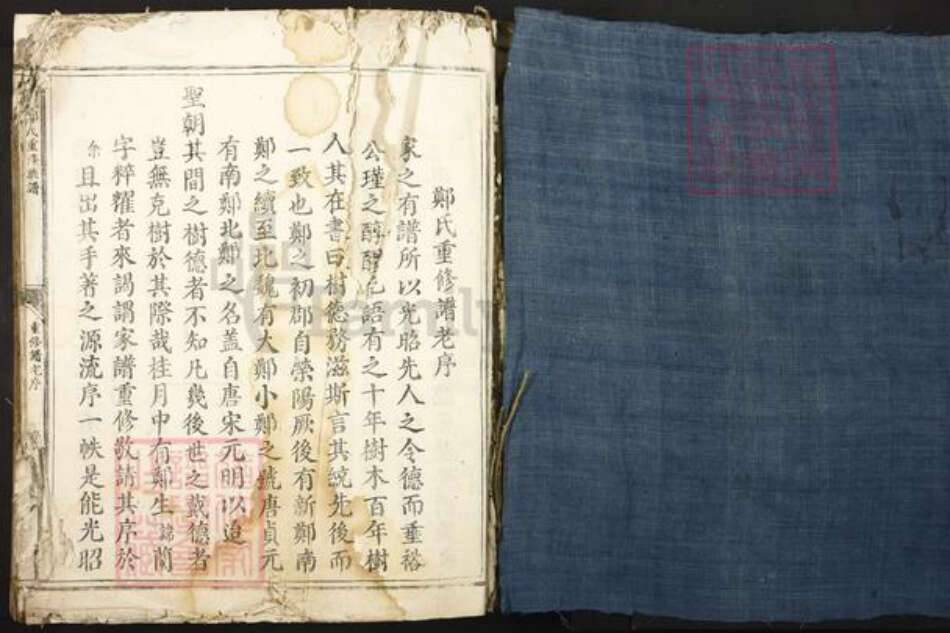 鄭氏重修譜老序
家之有譜所以光昭先人之令德而垂裕
公瑾之醇醒也語有之十年樹木百年樹
人其在書曰樹德務滋斯言其統先後而
一致也鄭之初郡自滎陽厥後有新鄭南
鄭之續至北魏有大鄭小鄭之號唐貞元
有南鄭北鄭之名蓋自唐宋元明以迨
聖朝其間之樹德者不知凡幾後世之戴德者
豈無克樹於其際哉桂月中有鄭生錦蘭
字粹糴者來謁謂家譜重修敬請其序於
余且出其手著之源流序一帙是能光昭
氏重修族譜
重修譜老序